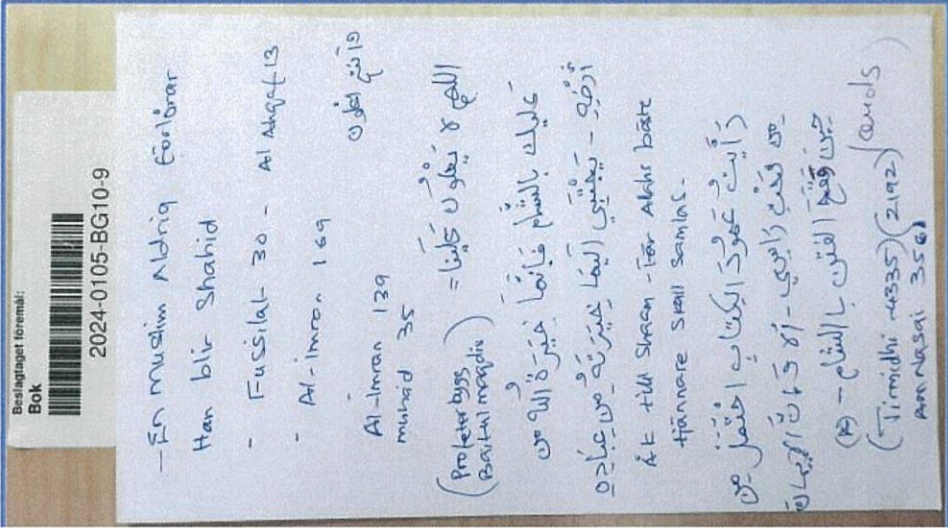 Beslagtaget föremål:
Bok
2024-0105-BG10-9
- En muslim Aldrig förlorar
Han blir Shahid
- Fussilat - 30 - Al Ahqaf 13
- Al-Imron 169
Al-Imran 139
muhad 35
وأنتم الأعلون
(Profeter bygg
Baitul maqdis) = اللهم لا يعلون علينا
عليك بالشام فإنها خيرة الله من
أرضه - يجتبي إليها خيرته من عباده
Åk till Sham - För Allahs bäste
tjännare skall samlas.
رأيت عمود الكتاب احتمل من
من تحت رأسي - ألا وإن الإيمان
حين تقع الفتن بالشام - (R)
(Tirmidhi - 4335) (2192)
AnNasai 3561